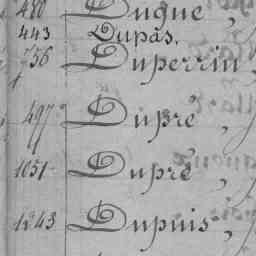 480 Duqué,
443 Dupâs,
756 Duperrin,
497 Dupré,
1051 Dupré,
1243 Dupuis,